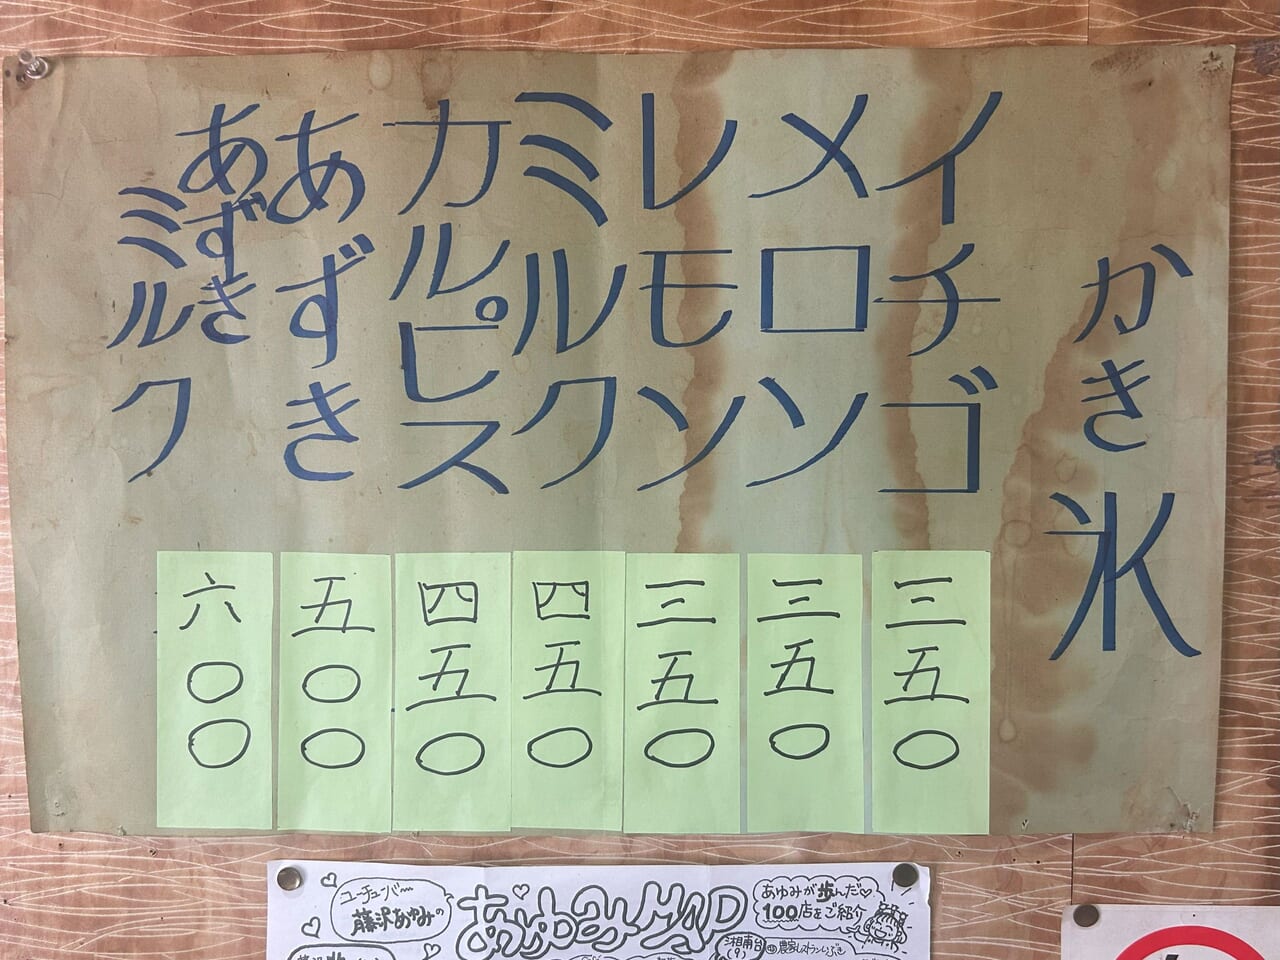 かき氷
イチゴ
三五〇
メロン
三五〇
レモン
三五〇
ミルク
四五〇
カルピス
四五〇
あずき
五〇〇
あずきミルク
六〇〇
ユーチューバー
藤沢あゆみの
あゆみMAP
あゆみが歩んだ♡
100店をご紹介
湘南台
(9)